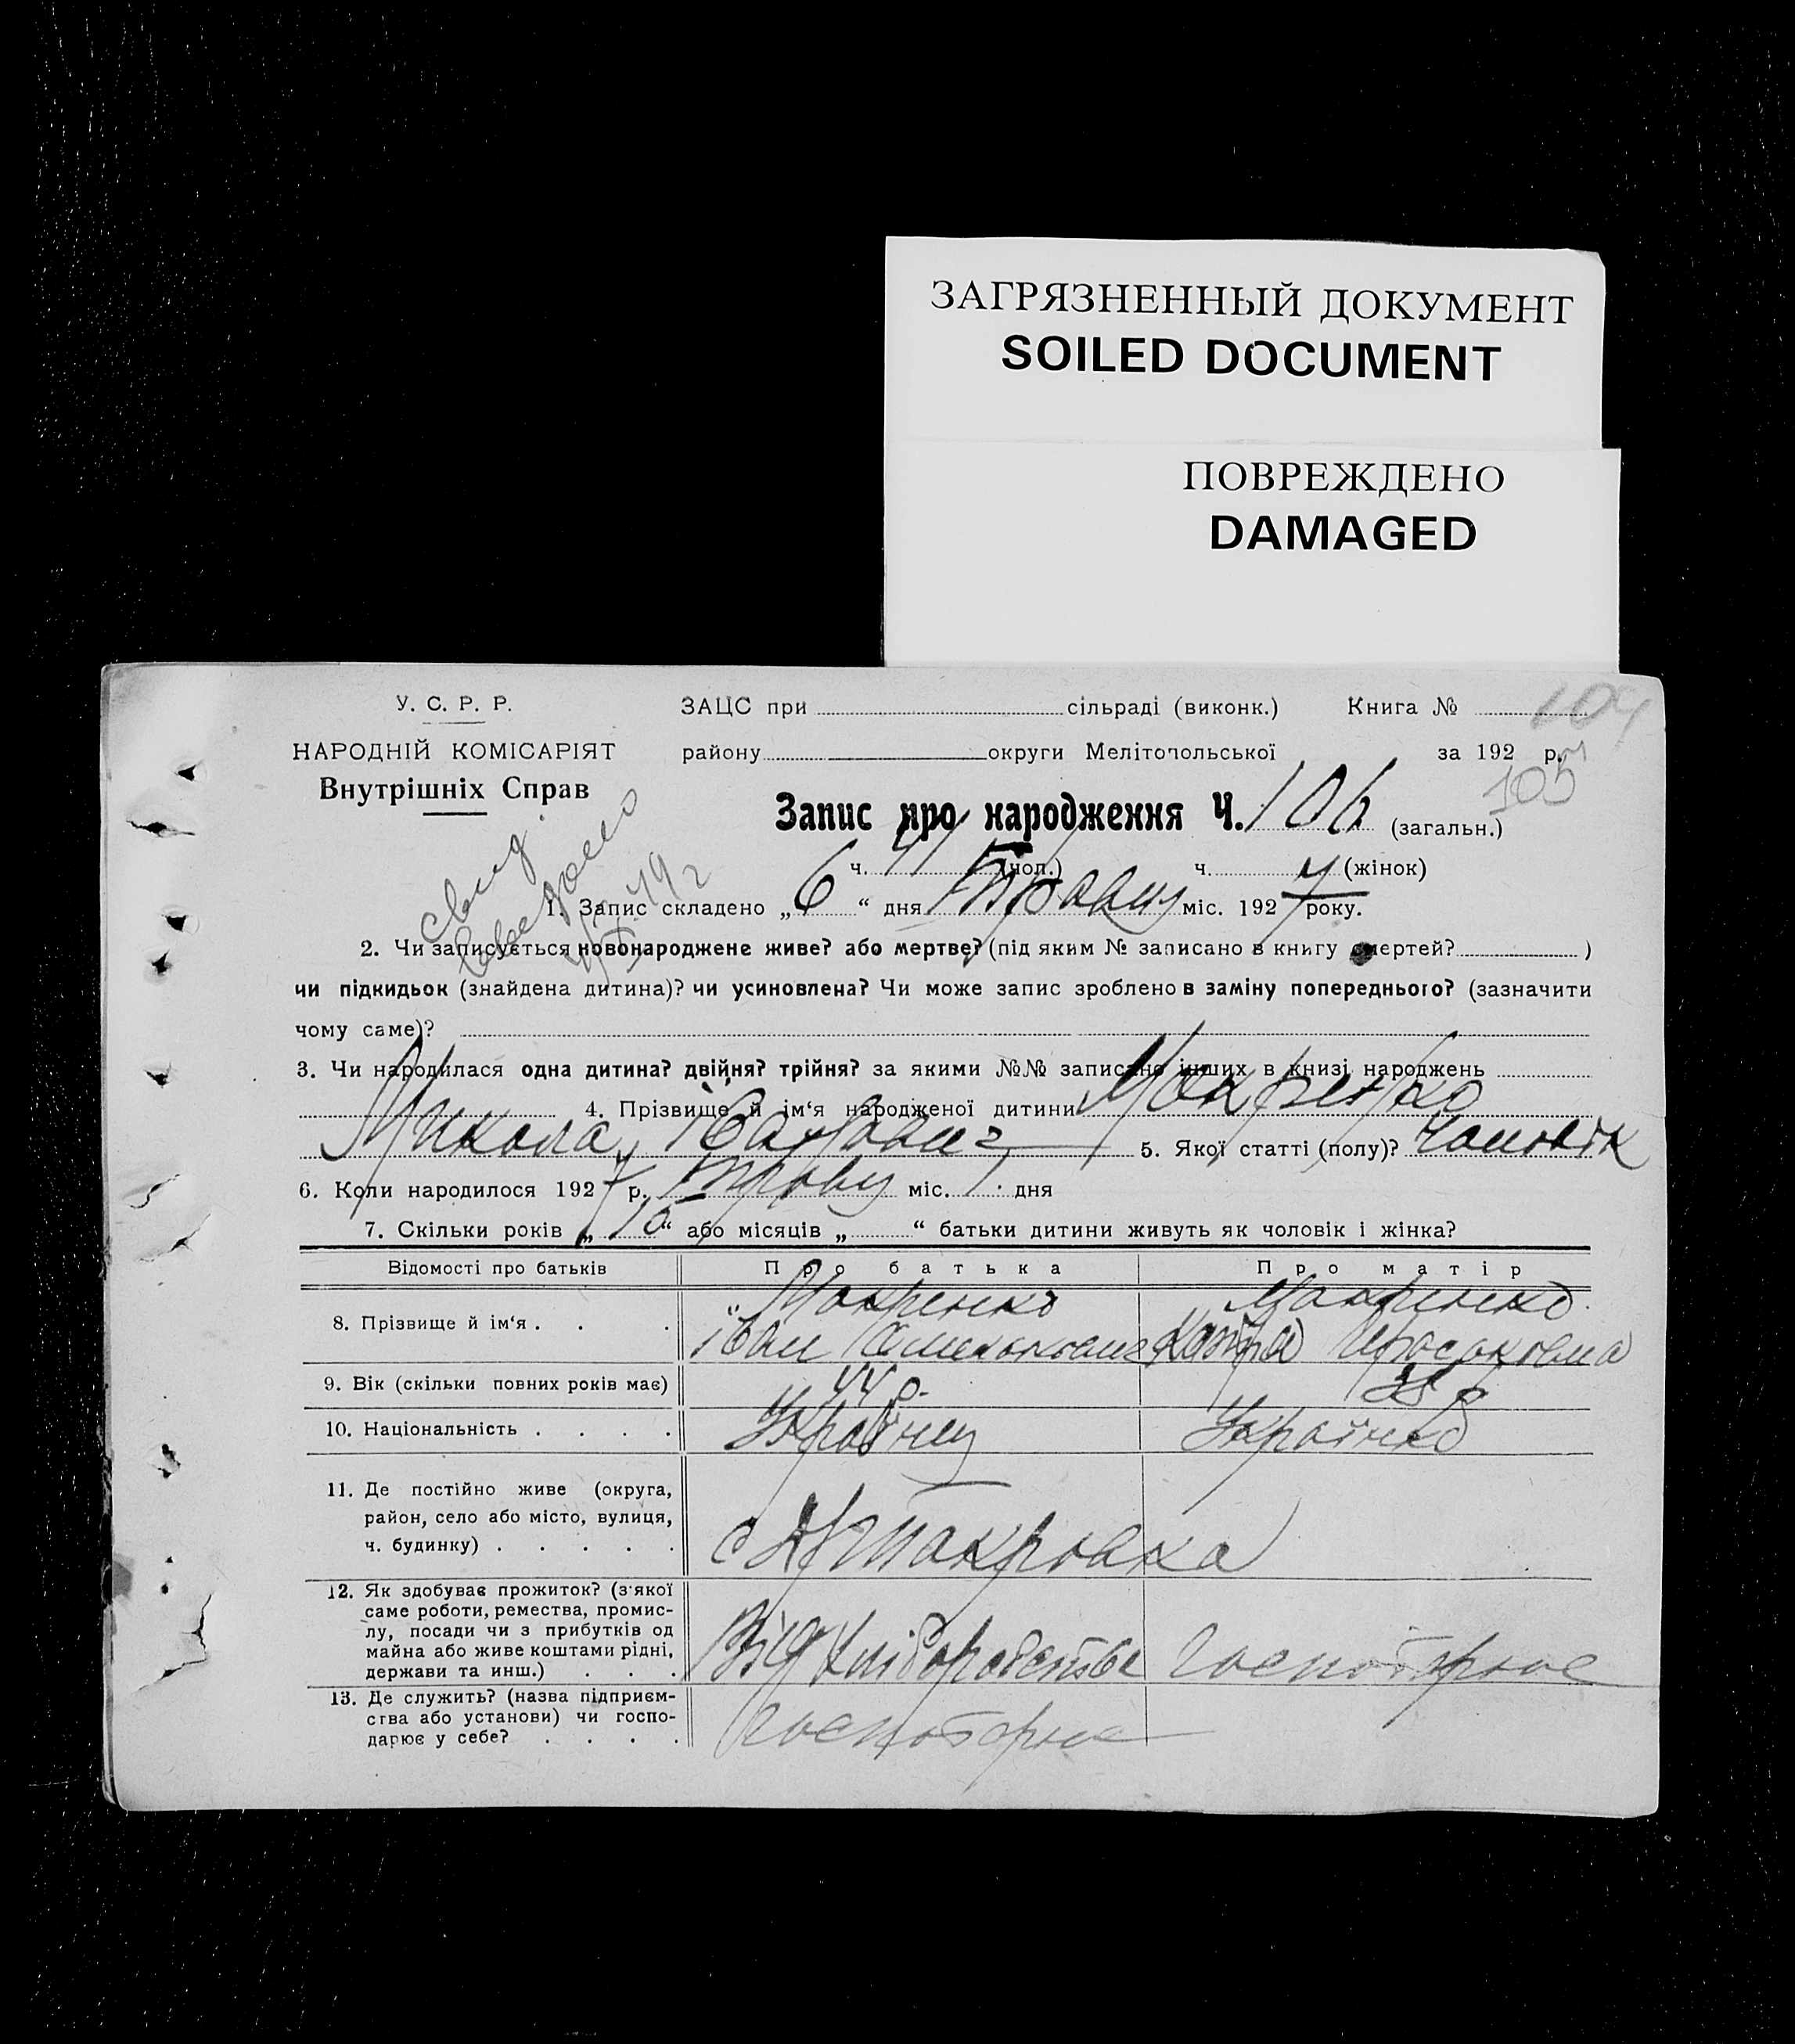 ЗАГРЯЗНЕННЫЙ ДОКУМЕНТ
SOILED DOCUMENT
ПОВРЕЖДЕНО
DAMAGED
У. С. Р. Р. ЗАЦС при сільраді (виконк.) Книга № 104
НАРОДНІЙ КОМІСАРІЯТ району округи Мелітопольської за 192 р.
Внутрішніх Справ 105
Запис про народження Ч. 106 (загальн.)
ч. (чол.) ч. (жінок)
1. Запис складено „ 6 “ дня Травну міс. 1927 року.
2. Чи записується новонароджене живе? або мертве? (під яким № записано в книгу смертей? )
чи підкидьок (знайдена дитина)? чи усиновлена? Чи може запис зроблено в заміну попереднього? (зазначити
чому саме)?
3. Чи народилася одна дитина? двійня? трійня? за якими №№ записано інших в книзі народжень
4. Прізвище й ім‘я народженої дитини Макренко
Микола Іванович 5. Якої статті (полу)? Чоловік
6. Коли народилось 1927 р. Травну міс. 1 дня
7. Скільки років „ 15 “ або місяців „ “ батьки дитини живуть як чоловік і жінка?
Відомості про батьків Про батька Про матір
8. Прізвище й ім‘я . . . Макренко Макренко
Іван
9. Вік (скільки повних років має) 44 р. 38 р
10. Національність . . . . Українец Українка
11. Де постійно живе (округа,
район, село або місто, вулиця,
ч. будинку) . . . . .
12. Як здобуває прожиток? (з якої
саме роботи, ремества, промис-
лу, посади чи з прибутків од
майна або живе коштами рідні,
держави та инш.) . . . Від Хліборобства
13. Де служить? (назва підприєм-
ства або установи) чи госпо-
дарює у себе? . . . .